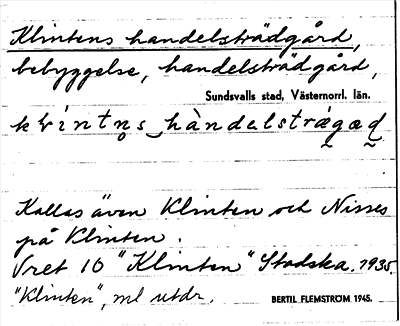 Klintens handelsträdgård,
bebyggelse, handelsträdgård,
Sundsvalls stad, Västernorrl. län.
Kallas även Klinten och Nisses
på Klinten.
Vret 10 "Klinten" Stadska. 1935.
"Klinten", ml utdr.
BERTIL FLEMSTRÖM 1945.